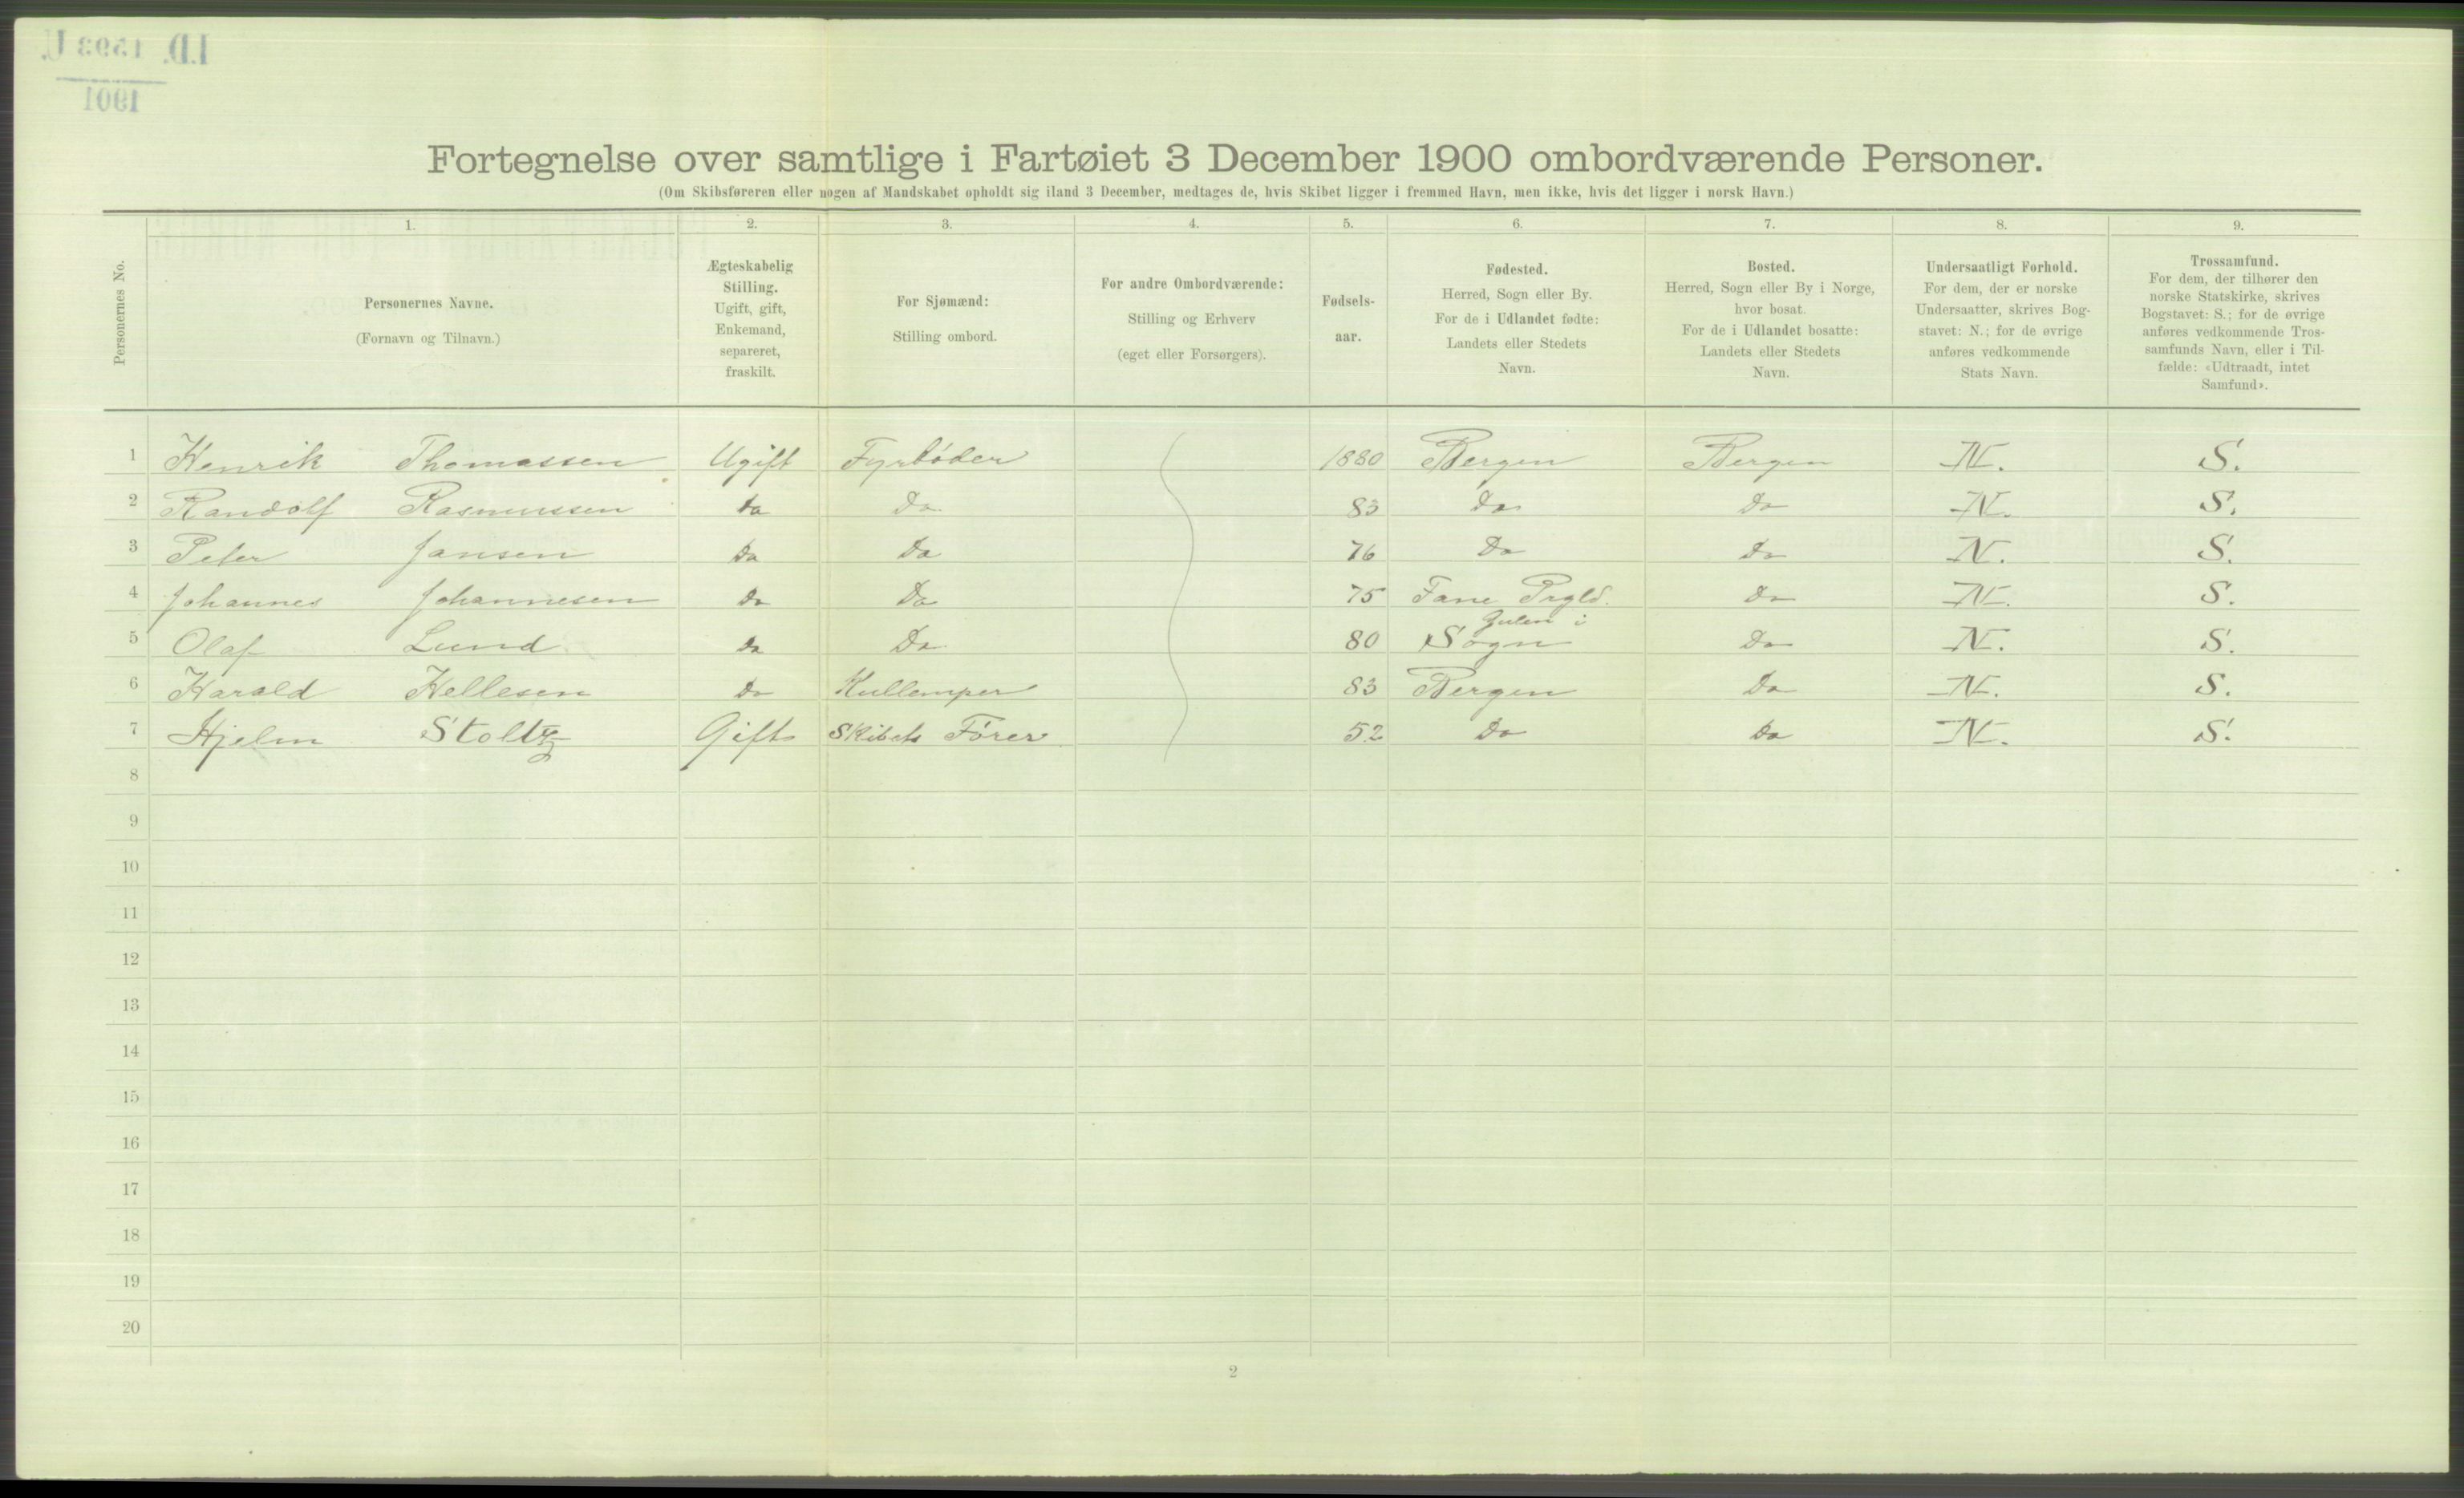 I.D. 1593 U.
1901
Fortegnelse over samtlige i Fartøiet 3 December 1900 ombordværende Personer.
(Om Skibsføreren eller nogen af Mandskabet opholdt sig iland 3 December, medtages de, hvis Skibet ligger i fremmed Havn, men ikke, hvis det ligger i norsk Havn.)
Personernes No.
1.
Personernes Navne.
(Fornavn og Tilnavn.)
2.
Ægteskabelig
Stilling.
Ugift, gift,
Enkemand,
separeret,
fraskilt.
3.
For Sjømænd:
Stilling ombord.
4.
For andre Ombordværende:
Stilling og Erhverv
(eget eller Forsørgers).
5.
Fødsels-
aar.
6.
Fødested.
Herred, Sogn eller By.
For de i Udlandet fødte:
Landets eller Stedets
Navn.
7.
Bosted.
Herred, Sogn eller By i Norge,
hvor bosat.
For de i Udlandet bosatte:
Landets eller Stedets
Navn.
8.
Undersaatligt Forhold.
For dem, der er norske
Undersaatter, skrives Bog-
stavet: N.; for de øvrige
anføres vedkommende
Stats Navn.
9.
Trossamfund.
For dem, der tilhører den
norske Statskirke, skrives
Bogstavet: S.; for de øvrige
anføres vedkommende Tros-
samfunds Navn, eller i Til-
fælde: «Udtraadt, intet
Samfund».
1 Henrik Thomassen Ugift Fyrbóder 1880 Bergen Bergen N. S.
2 Randolf Rasmussen Do Do 83 Do Do N. S.
3 Peter Jansen Do Do 76 Do Do N. S.
4 Johannes Johannesen Do Do 75 Fane Prgld. Do N. S.
5 Olaf Lund Do Do 80 Gulen i Sogn Do N. S.
6 Harald Hellesen Do Kullemper 83 Bergen Do N. S.
7 Hjelm Stoltz Gift Skibets Fórer 52 Do Do N. S.
8
9
10
11
12
13
14
15
16
17
18
19
20
2